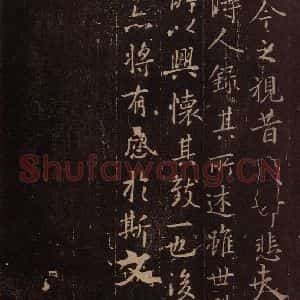 今之視昔
時人錄其所述雖世
所以興懷其致一也後
亦將有感於斯文
Shufawang.CN